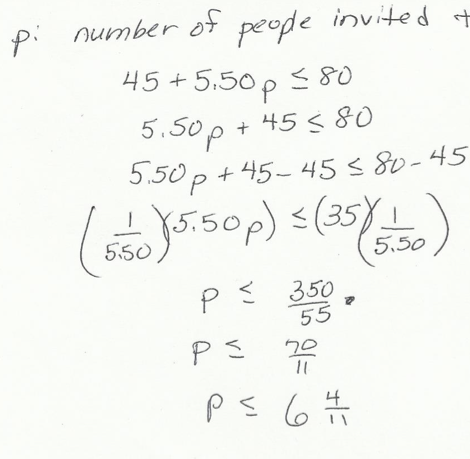 p: number of people invited t
45 + 5.50p ≤ 80
5.50p + 45 ≤ 80
5.50p + 45 - 45 ≤ 80 - 45
(1/5.50)(5.50p) ≤ (35)(1/5.50)
p ≤ 350/55 .
p ≤ 70/11
p ≤ 6 4/11